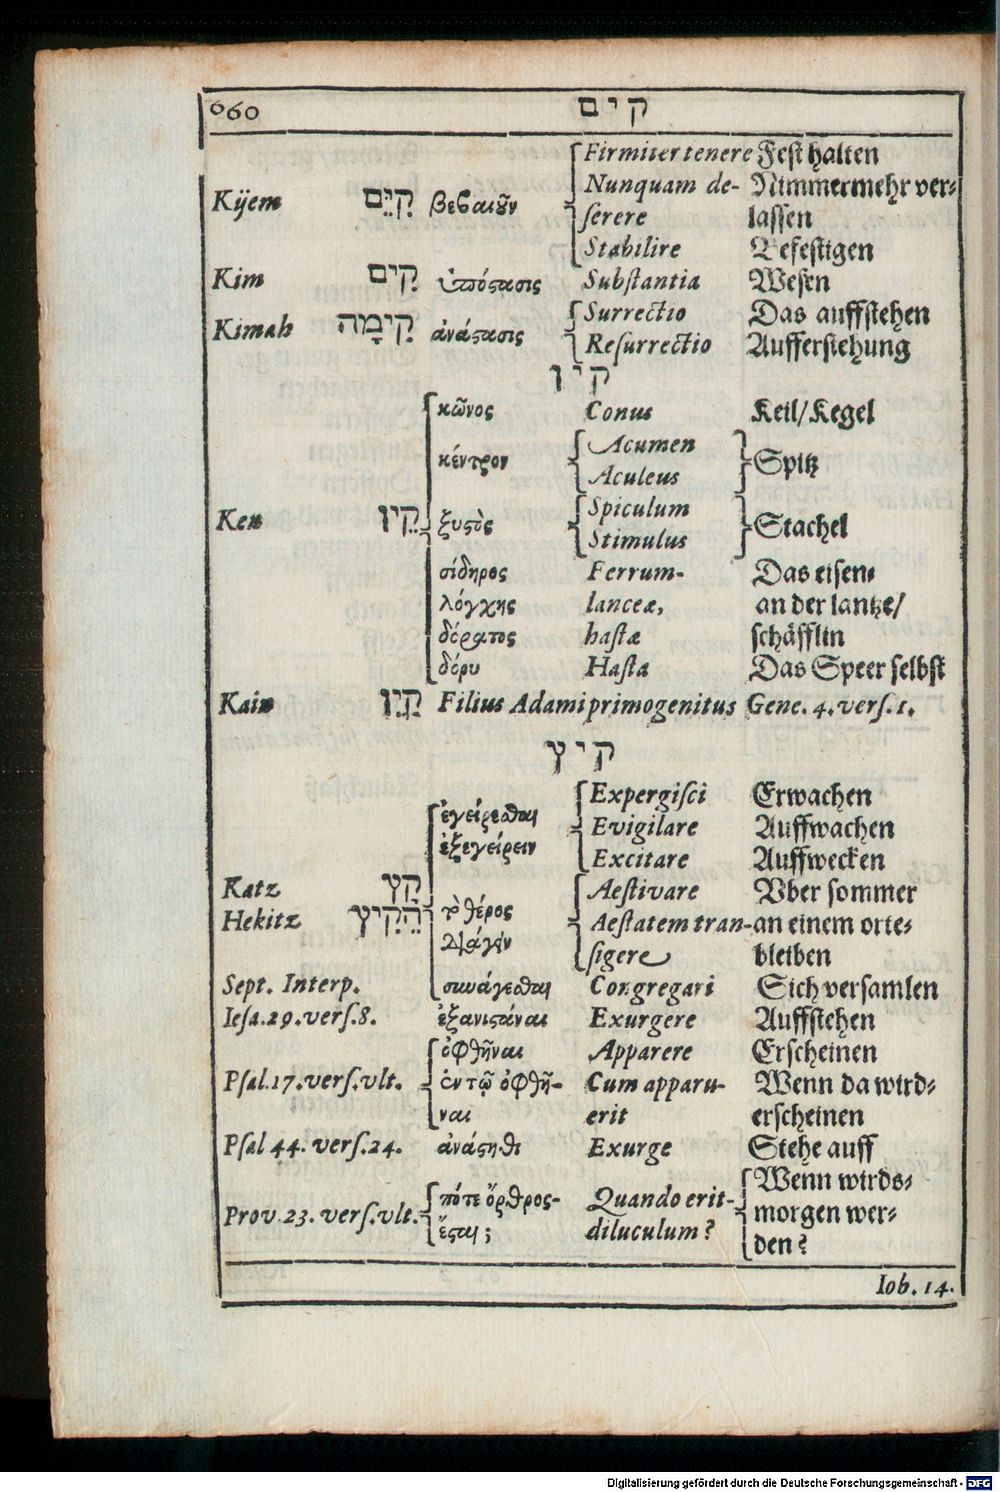 660 קים
Firmiter tenere Fest halten
Kÿem קַיֵּם βεβαιοῦν Nunquam de- Nimmermehr ver-
serere lassen
Stabilire Befestigen
Kim קִים ὑπόστασις Substantia Wesen
Surrectio Das auffstehen
Kimah קִימָה ἀνάστασις Resurrectio Aufferstehung
קין
κῶνος Conus Keil/Kegel
κέντρον Acumen Spitz
Aculeus
Ken קֵין ξυστὸς Spiculum Stachel
Stimulus
σίδηρος Ferrum- Das eisen-
λόγχης lanceæ, an der lantze/
δόρατος hastæ schäfflin
δόρυ Hasta Das Speer selbst
Kain קַיִן Filius Adami primogenitus Gene. 4. vers. 1.
קיץ
ἐγείρεσθαι Expergisci Erwachen
ἐξεγείρειν Evigilare Auffwachen
Excitare Auffwecken
Katz קָץ Aestivare Vber sommer
Hekitz הֵקִיץ τὸ θέρος Aestatem tran- an einem orte-
διάγειν sigere bleiben
Sept. Interp. συνάγεσθαι Congregari Sich versamlen
Iesa. 29. vers. 8. ἐξανιστάναι Exurgere Auffstehen
ὀφθῆναι Apparere Erscheinen
Psal. 17. vers. vlt. ἐν τῷ ὀφθῆ- Cum apparu- Wenn da wird-
ναι erit erscheinen
Psal 44. vers. 24. ἀνάστηθι Exurge Stehe auff
Wenn wirds-
Prov. 23. vers. vlt. πότε ὄρθρος- Quando erit- morgen wer-
ἔσται; diluculum? den?
Iob. 14.
Digitalisierung gefördert durch die Deutsche Forschungsgemeinschaft - DFG